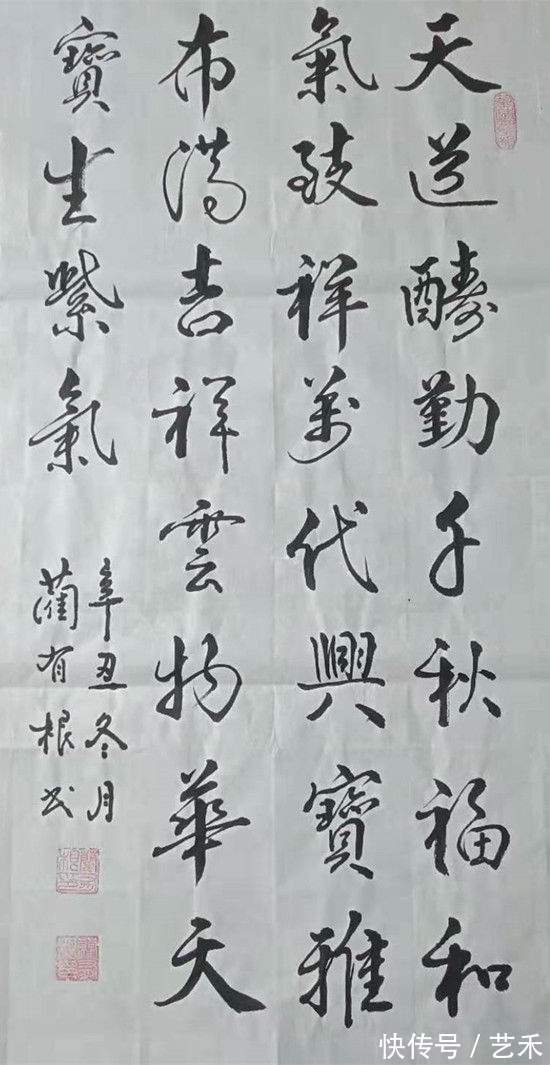 天道酬勤千秋福和
氣致祥萬代興寶雅
布滿吉祥雲物華天
寶生紫氣
辛丑冬月
藺有根书
快传号/艺禾